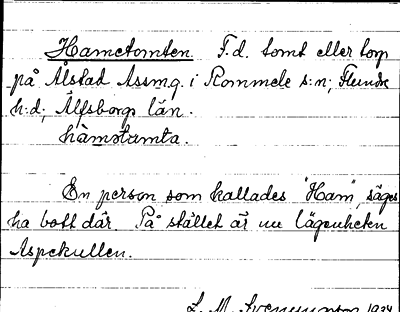 Hametomten. F.d. tomt eller torp
på Ålstad Assmg. i Rommele s:n; Flundre
h:d; Älfsborgs län.
hàmətamta.
En person som kallades "Ham", säges
ha bott där. På stället är nu lägenheten
Aspekullen.
L. M. Svenungsson 1934